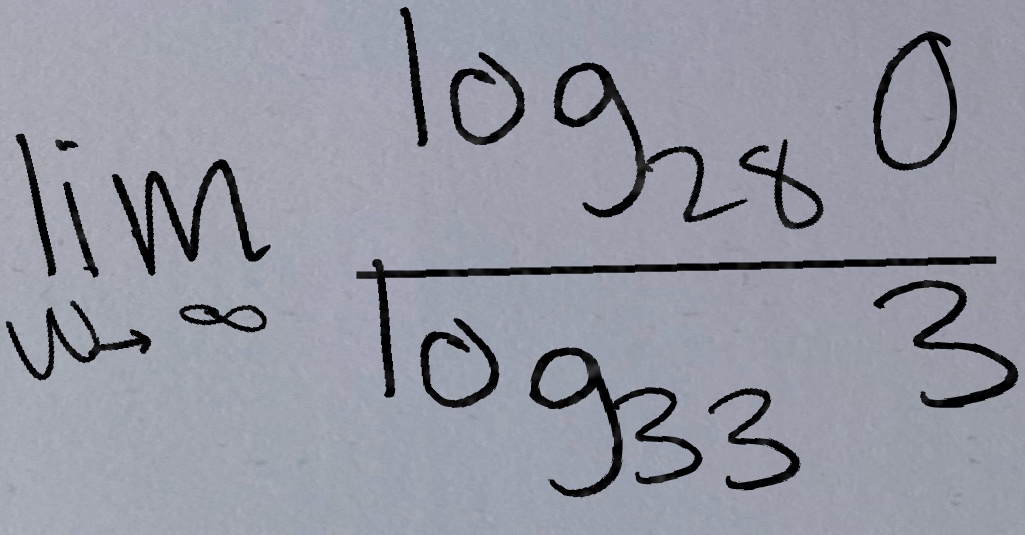 \lim_{w \to \infty} \frac{\log_{28} 0}{\log_{33} 3}